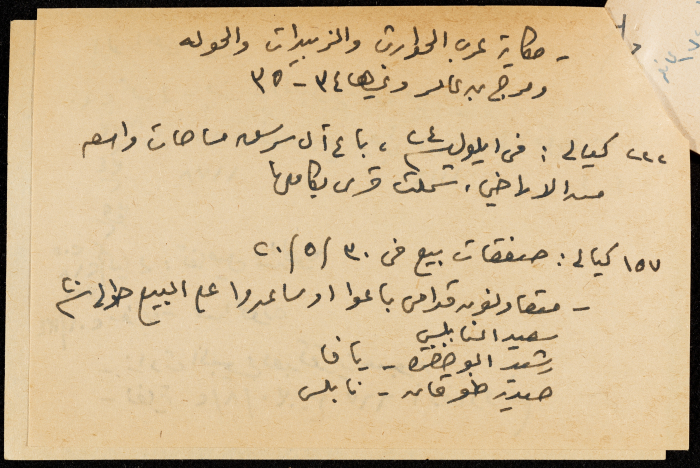 - حكاية عرب الحوارث والزبيدات والحوله
ومرج بن عامر وغيرها ٣٤ - ٣٥
٢٢٢ كيالي : في ايلول ٢٤ ، باع آل سرسق مساحات واسعه
من الاراضي ، شملت قرى بكاملها
١٥٧ كيالي : صفقات بيع في ٣٠ / ٥ / ٢٠
- متعاونون قدامى باعوا او ساعدوا على البيع حوالي ٢٠
سعيد النابلسي
رشيد ابو خضره - يافا
حيدر طوقان - نابلس